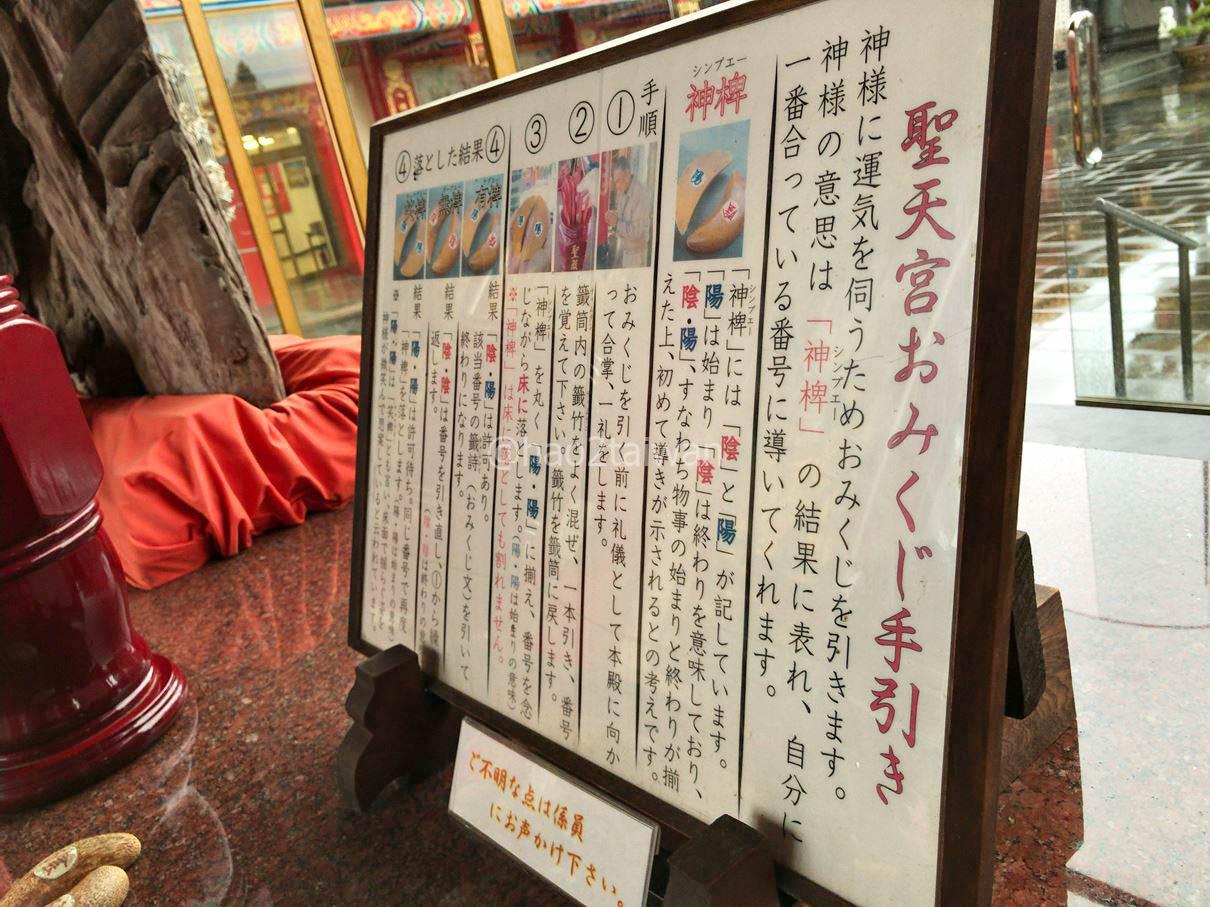 聖天宮おみくじ手引き
神様に運気を伺うためおみくじを引きます。
神様の意思は「神椑」の結果に表れ、自分に
シンプエー
一番合っている番号に導いてくれます。
シンプエー
神椑
陽
「神椑」には「陰」と「陽」が記しています。
シンプエー
「陽」は始まり「陰」は終わりを意味しており、
「陰・陽」、すなわち物事の始まりと終わりが揃
えた上、初めて導きが示されるとの考えです。
手順
①
おみくじを引く前に礼儀として本殿に向か
って合掌、一礼をします。
②
籤筒内の籤竹をよく混ぜ、一本引き、番号
を覚えて下さい。籤竹を籤筒に戻します。
③
「神椑」を丸く「陽・陽」に揃え、番号を念
シンプエー
じながら床に落とします。(陽・陽は始まりの意味)
※「神椑」は床に落としても割れません。
④落とした結果④
有椑
無椑
結果「陰・陽」は許可あり。
該当番号の籤詩(おみくじ文)を引いて
終わりになります。
結果「陰・陰」は番号を引き直し、①から繰
返します。
結果「陽・陽」は許可待ち。同じ番号で再度
「神椑」を落とします。
ご不明な点は係員
にお声かけ下さい。